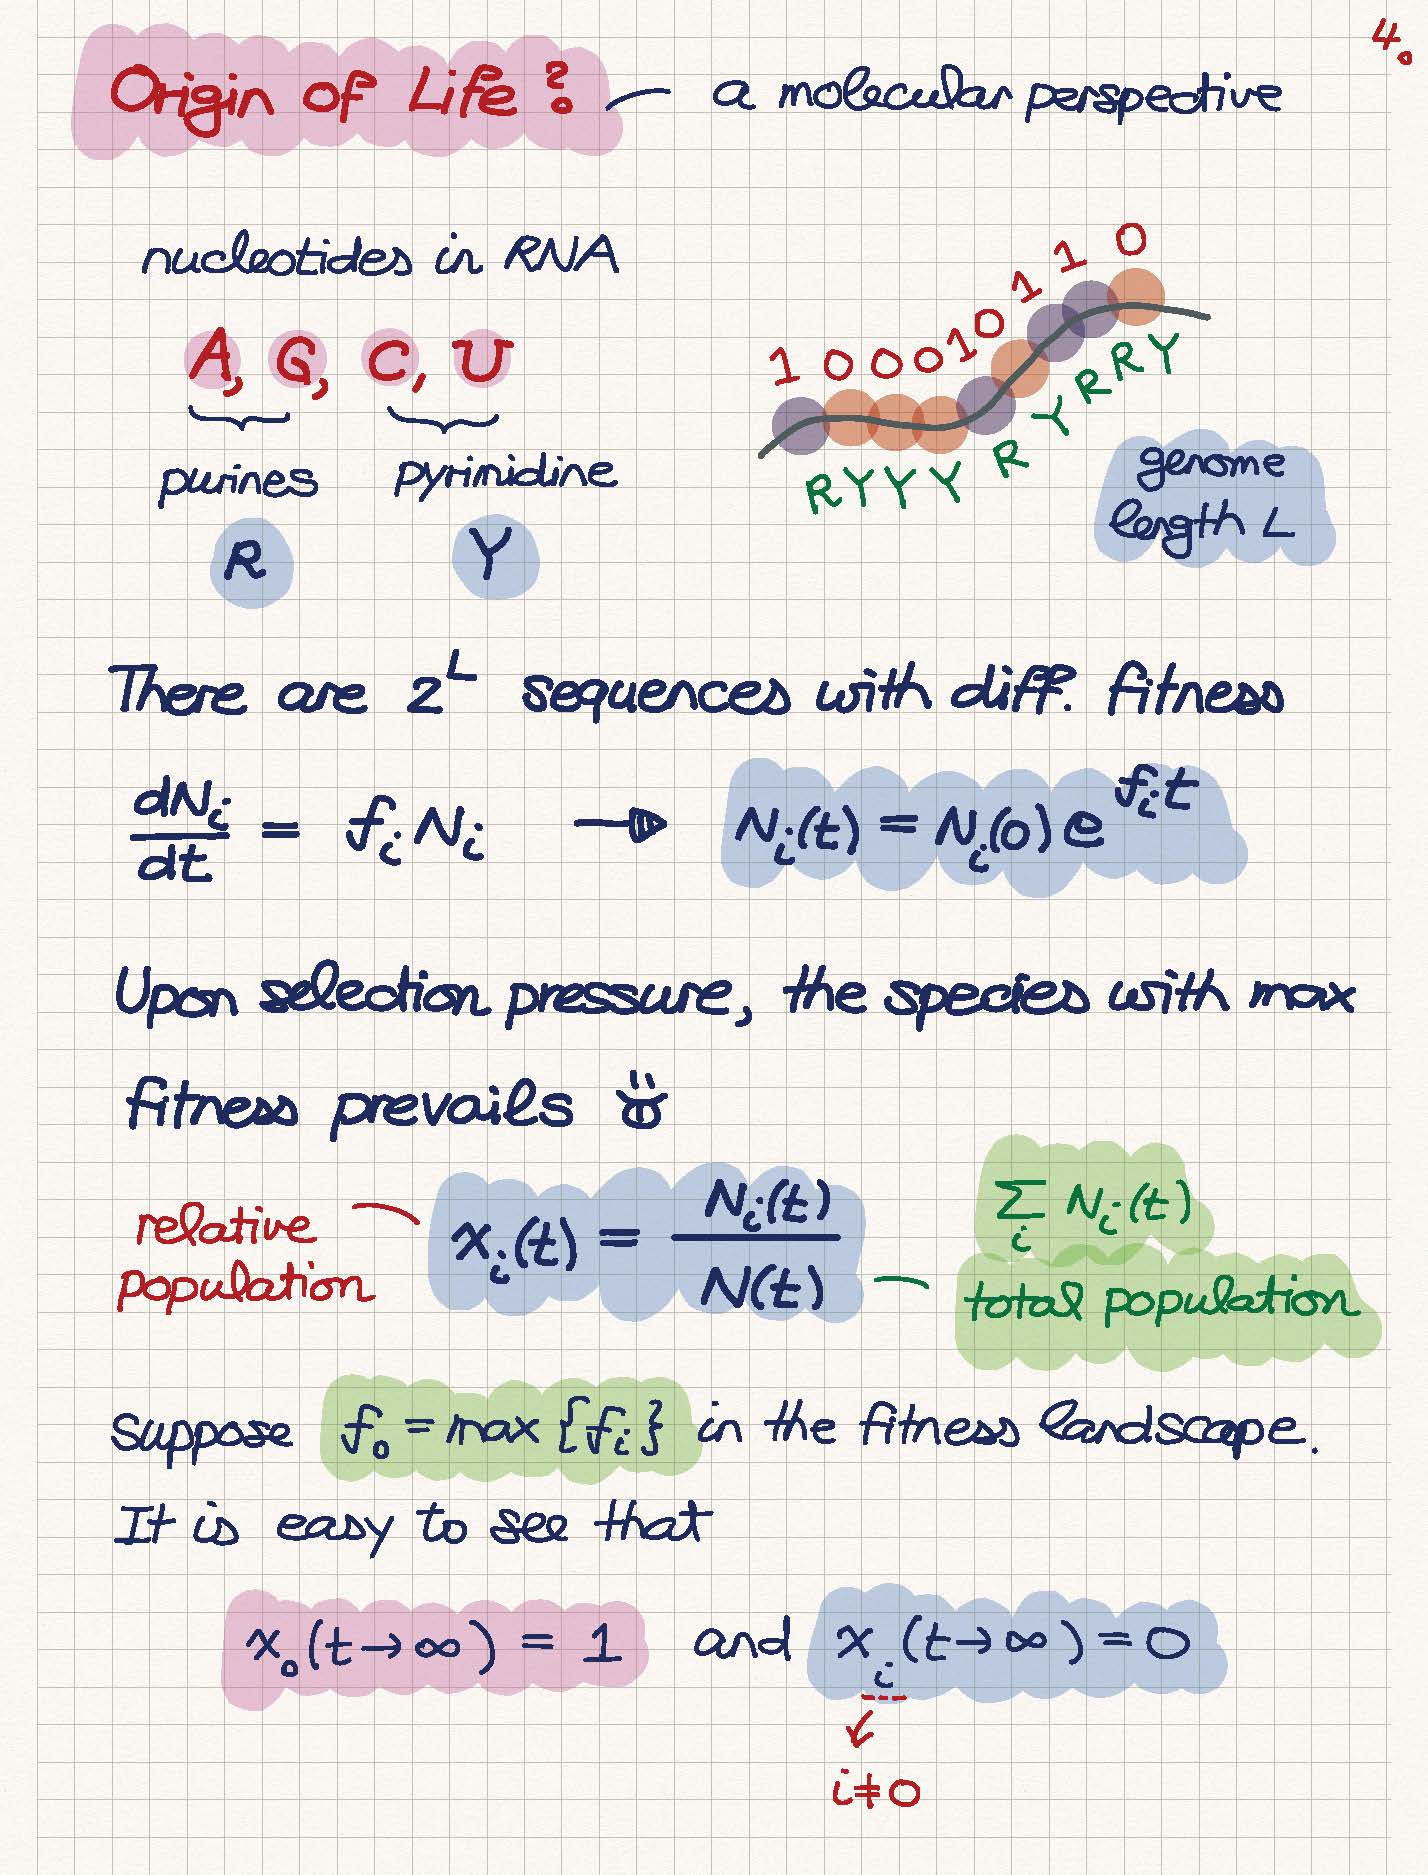 4.
Origin of Life? — a molecular perspective
nucleotides in RNA
A, G, C, U
purines pyrimidine
R Y
1 0 0 0 1 0 1 1 0
R Y Y Y R Y R R Y
genome
length L
There are 2^L sequences with diff. fitness
dN_i/dt = f_i N_i → N_i(t) = N_i(0) e^{f_i t}
Upon selection pressure, the species with max
fitness prevails
relative
population
x_i(t) = N_i(t)/N(t)
Σ_i N_i(t)
total population
Suppose f_0 = max {f_i} in the fitness landscape.
It is easy to see that
x_0(t→∞) = 1 and x_i(t→∞) = 0
i≠0